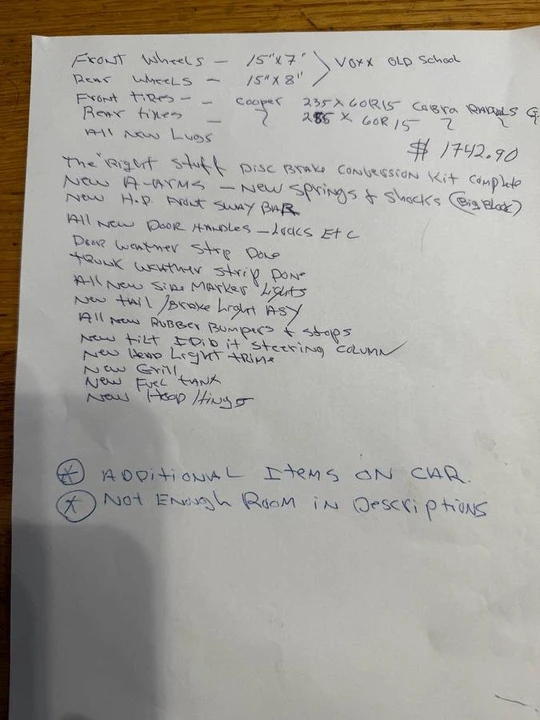 Front Wheels - 15"x7" > VOXX OLD School
Rear Wheels - 15"x8"
Front tires - - Cooper 235 x 60R15 Cobra Radials G
Rear tires - 60R15
All New Lugs
$ 1742.90
The "Right Stuff Disc Brake Conversion Kit Complete
New A-Arms - New Springs & Shocks (Big Block)
New H.D. Front Sway BAR
All New Door Handles - Locks Etc
Door Weather Strip Done
trunk Weather Strip Done
All New Side Marker Lights
New tail/Brake Light ASY
All New Rubber Bumpers & Stops
New tilt IDidit Steering Column
New Head Light trims
New Grill
New Fuel tank
New Hood Hinges
* ADDitionAL Items ON CAR.
* Not Enough Room in Descriptions